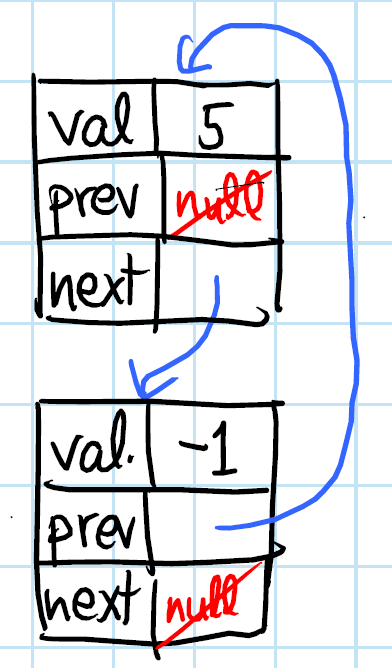 val 5
prev null
next
val. -1
prev
next null